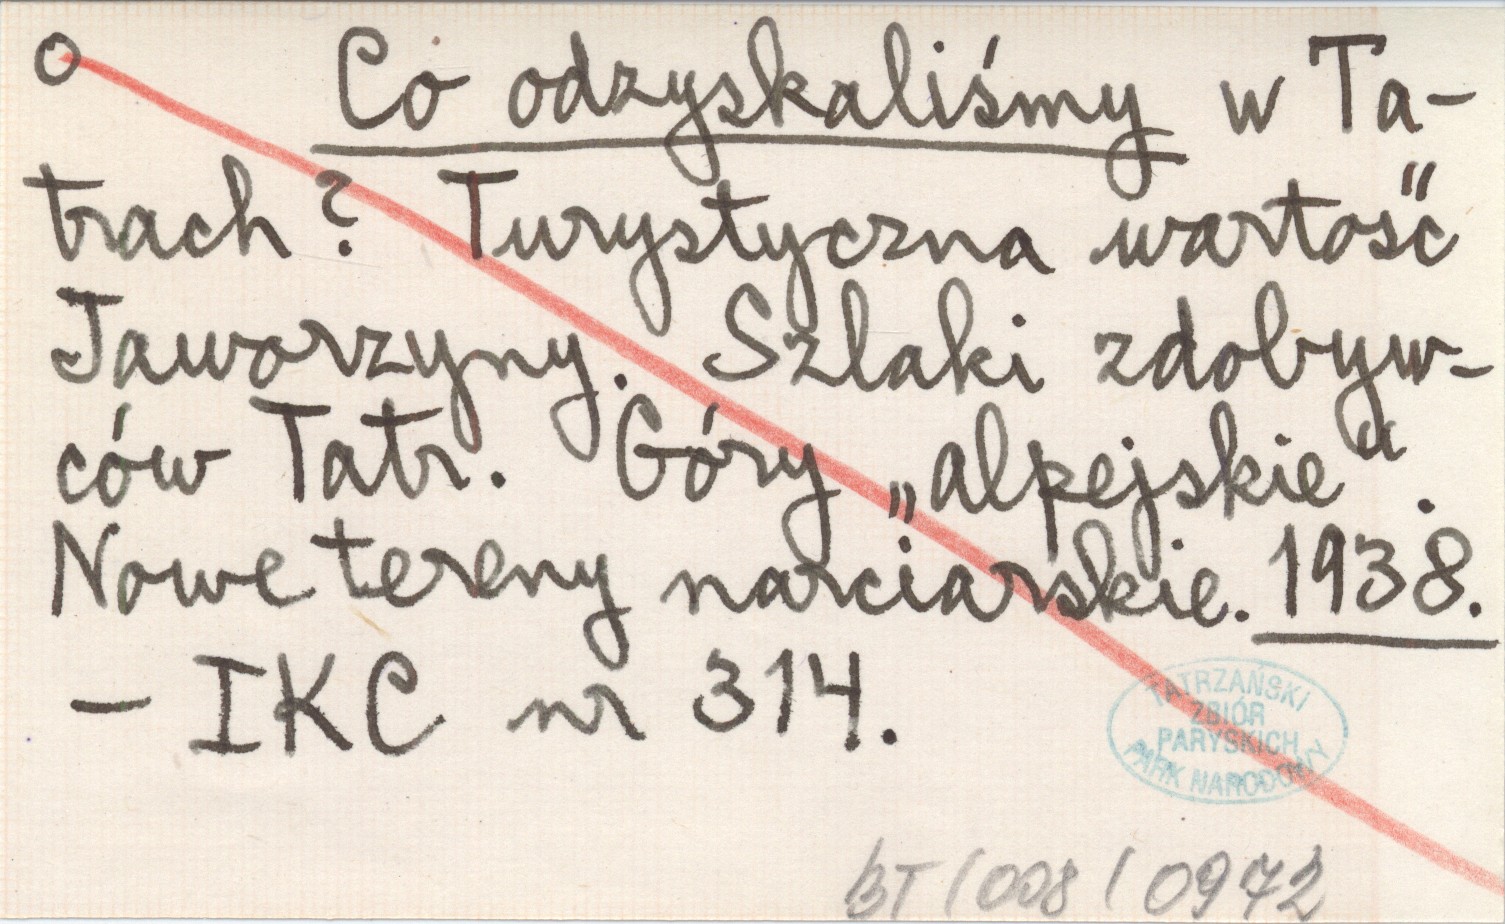 O Co odzyskaliśmy w Ta-
trach? Turystyczna wartość
Jaworzyny. Szlaki zdobyw-
ców Tatr. Góry „alpejskie".
Nowe tereny narciarskie. 1938.
— IKC nr 314.
TATRZAŃSKI
ZBIÓR
PARYSKICH
PARK NARODOWY
BT/008/0972